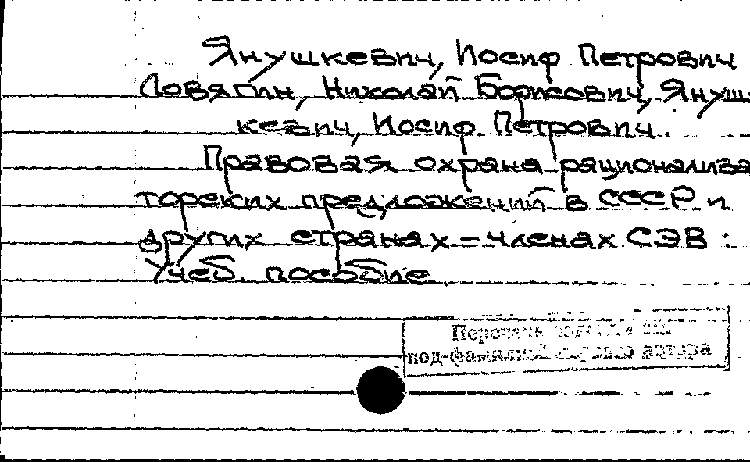 Янушкевич, Иосиф Петрович
Ловягин, Николай Борисович, Януш-
кевич, Иосиф Петрович.
Правовая охрана рационализа
торских предложений в СССР и
других странах - членах СЭВ :
Учеб. пособие
под фамилией автора